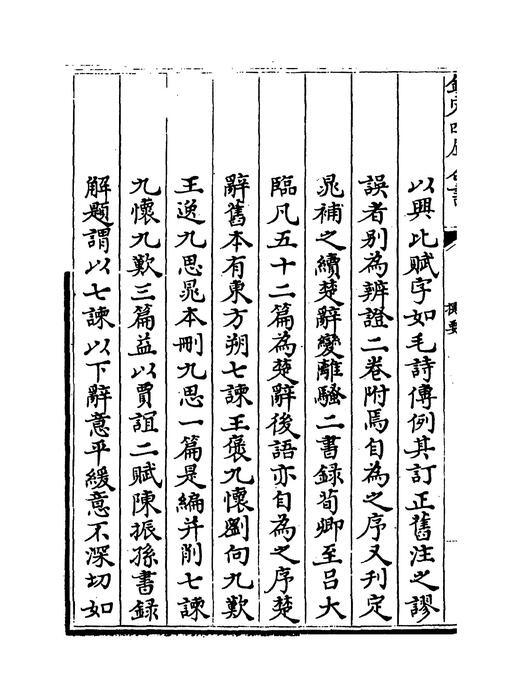 欽定四庫全書
提要
以興比賦字如毛詩傳例其訂正舊注之謬
誤者别為辨證二卷附焉自為之序又刋定
晁補之續楚辭變離騷二書録荀卿至吕大
臨凡五十二篇為楚辭後語亦自為之序楚
辭舊本有東方朔七諫王褒九懷劉向九歎
王逸九思晁本刪九思一篇是編并削七諫
九懷九歎三篇益以賈誼二賦陳振孫書録
解題謂以七諫以下辭意平緩意不深切如